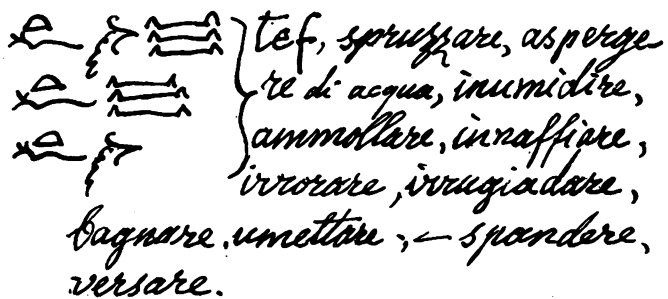 tef, spruzzare, asperge-
re di acqua, inumidire,
ammollare, innaffiare,
irrorare, irrugiadare,
bagnare, umettare, – spandere,
versare.